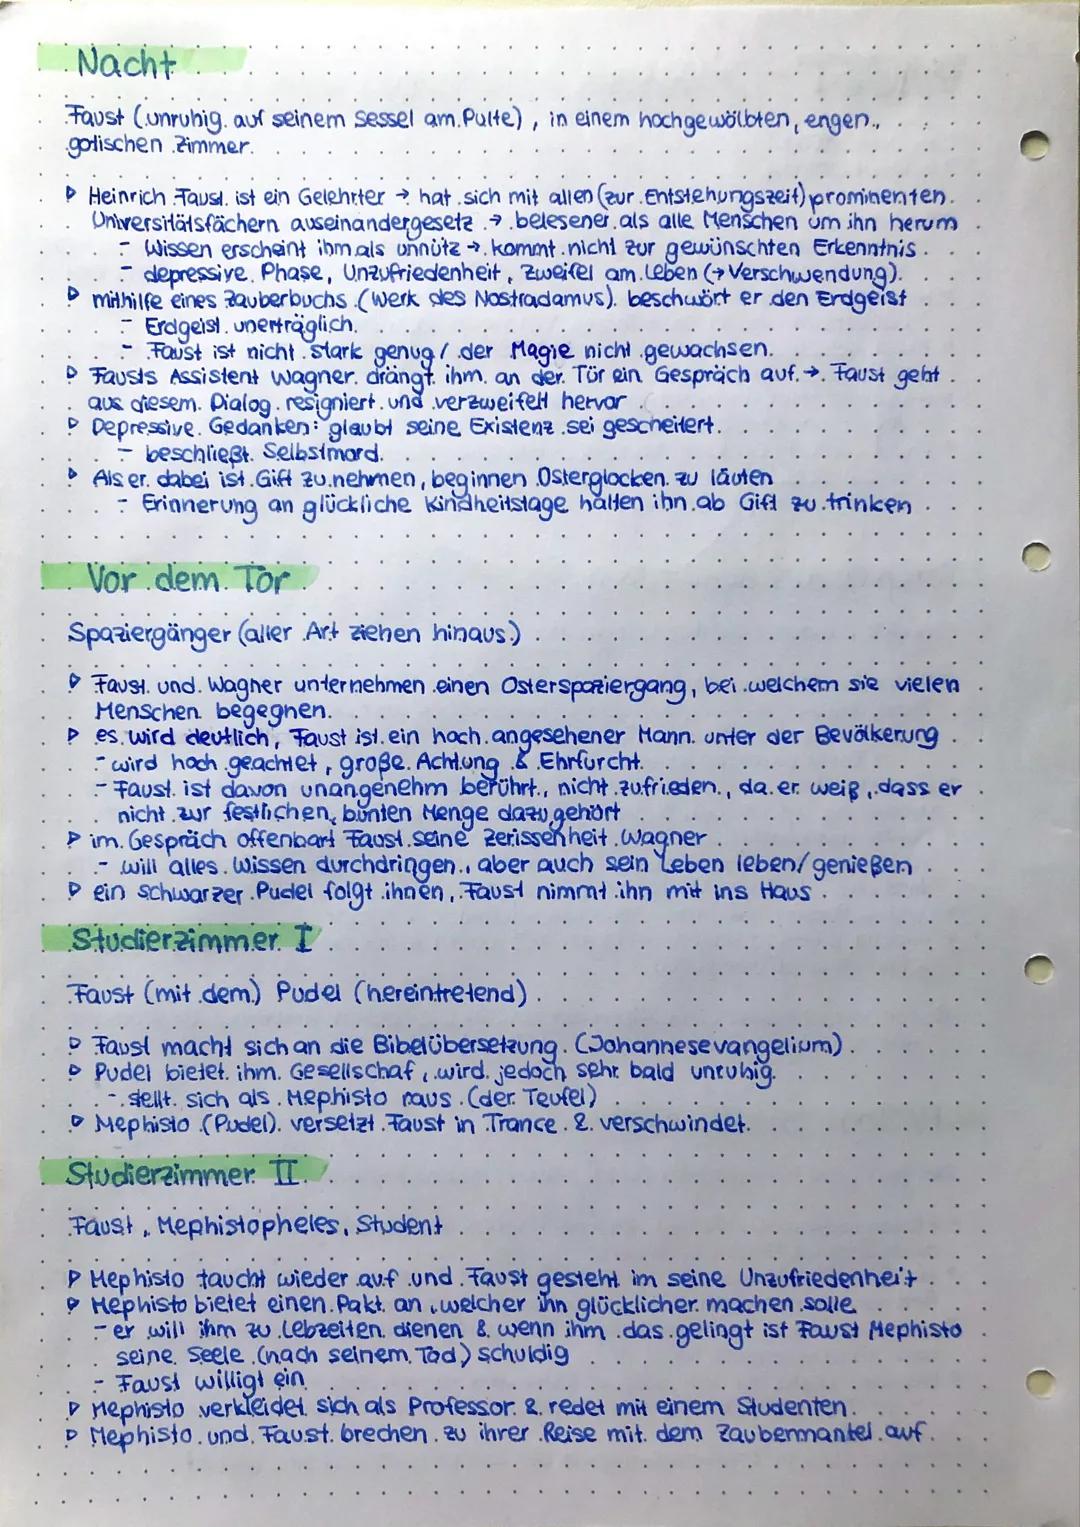 Nacht
Faust (unruhig auf seinem Sessel am Pulte), in einem hochgewölbten, engen,
gotischen Zimmer.
▷ Heinrich Faust ist ein Gelehrter → hat sich mit allen (zur Entstehungszeit) prominenten
Universitätsfächern auseinandergesetz → belesener als alle Menschen um ihn herum
- Wissen erscheint ihm als unnütz → kommt nicht zur gewünschten Erkenntnis
- depressive Phase, Unzufriedenheit, Zweifel am Leben (→ Verschwendung)
▷ mithilfe eines Zauberbuchs (Werk des Nostradamus) beschwört er den Erdgeist
- Erdgeist unerträglich
- Faust ist nicht stark genug / der Magie nicht gewachsen
▷ Fausts Assistent Wagner drängt ihm an der Tür ein Gespräch auf → Faust geht
aus diesem Dialog resigniert und verzweifelt hervor
▷ Depressive Gedanken: glaubt seine Existenz sei gescheitert
- beschließt Selbstmord
▷ Als er dabei ist Gift zu nehmen, beginnen Osterglocken zu läuten
- Erinnerung an glückliche Kindheitstage halten ihn ab Gift zu trinken
Vor dem Tor
Spaziergänger (aller Art ziehen hinaus)
▷ Faust und Wagner unternehmen einen Osterspaziergang, bei welchem sie vielen
Menschen begegnen
▷ es wird deutlich, Faust ist ein hoch angesehener Mann unter der Bevölkerung
- wird hoch geachtet, große Achtung & Ehrfurcht
- Faust ist davon unangenehm berührt, nicht zufrieden, da er weiß, dass er
nicht zur festlichen, bunten Menge dazugehört
▷ im Gespräch offenbart Faust seine Zerissenheit Wagner
- will alles Wissen durchdringen, aber auch sein Leben leben/genießen
▷ ein schwarzer Pudel folgt ihnen, Faust nimmt ihn mit ins Haus
Studierzimmer I
Faust (mit dem) Pudel (hereintretend)
▷ Faust macht sich an die Bibelübersetzung (Johannesevangelium)
▷ Pudel bietet ihm Gesellschaf, wird jedoch sehr bald unruhig
- stellt sich als Mephisto raus (der Teufel)
▷ Mephisto (Pudel) versetzt Faust in Trance & verschwindet
Studierzimmer II
Faust, Mephistopheles, Student
▷ Mephisto taucht wieder auf und Faust gesteht im seine Unzufriedenheit
▷ Mephisto bietet einen Pakt an, welcher ihn glücklicher machen solle
- er will ihm zu Lebzeiten dienen & wenn ihm das gelingt ist Faust Mephisto
seine Seele (nach seinem Tod) schuldig
- Faust willigt ein
▷ Mephisto verkleidet sich als Professor & redet mit einem Studenten
▷ Mephisto und Faust brechen zu ihrer Reise mit dem Zaubermantel auf